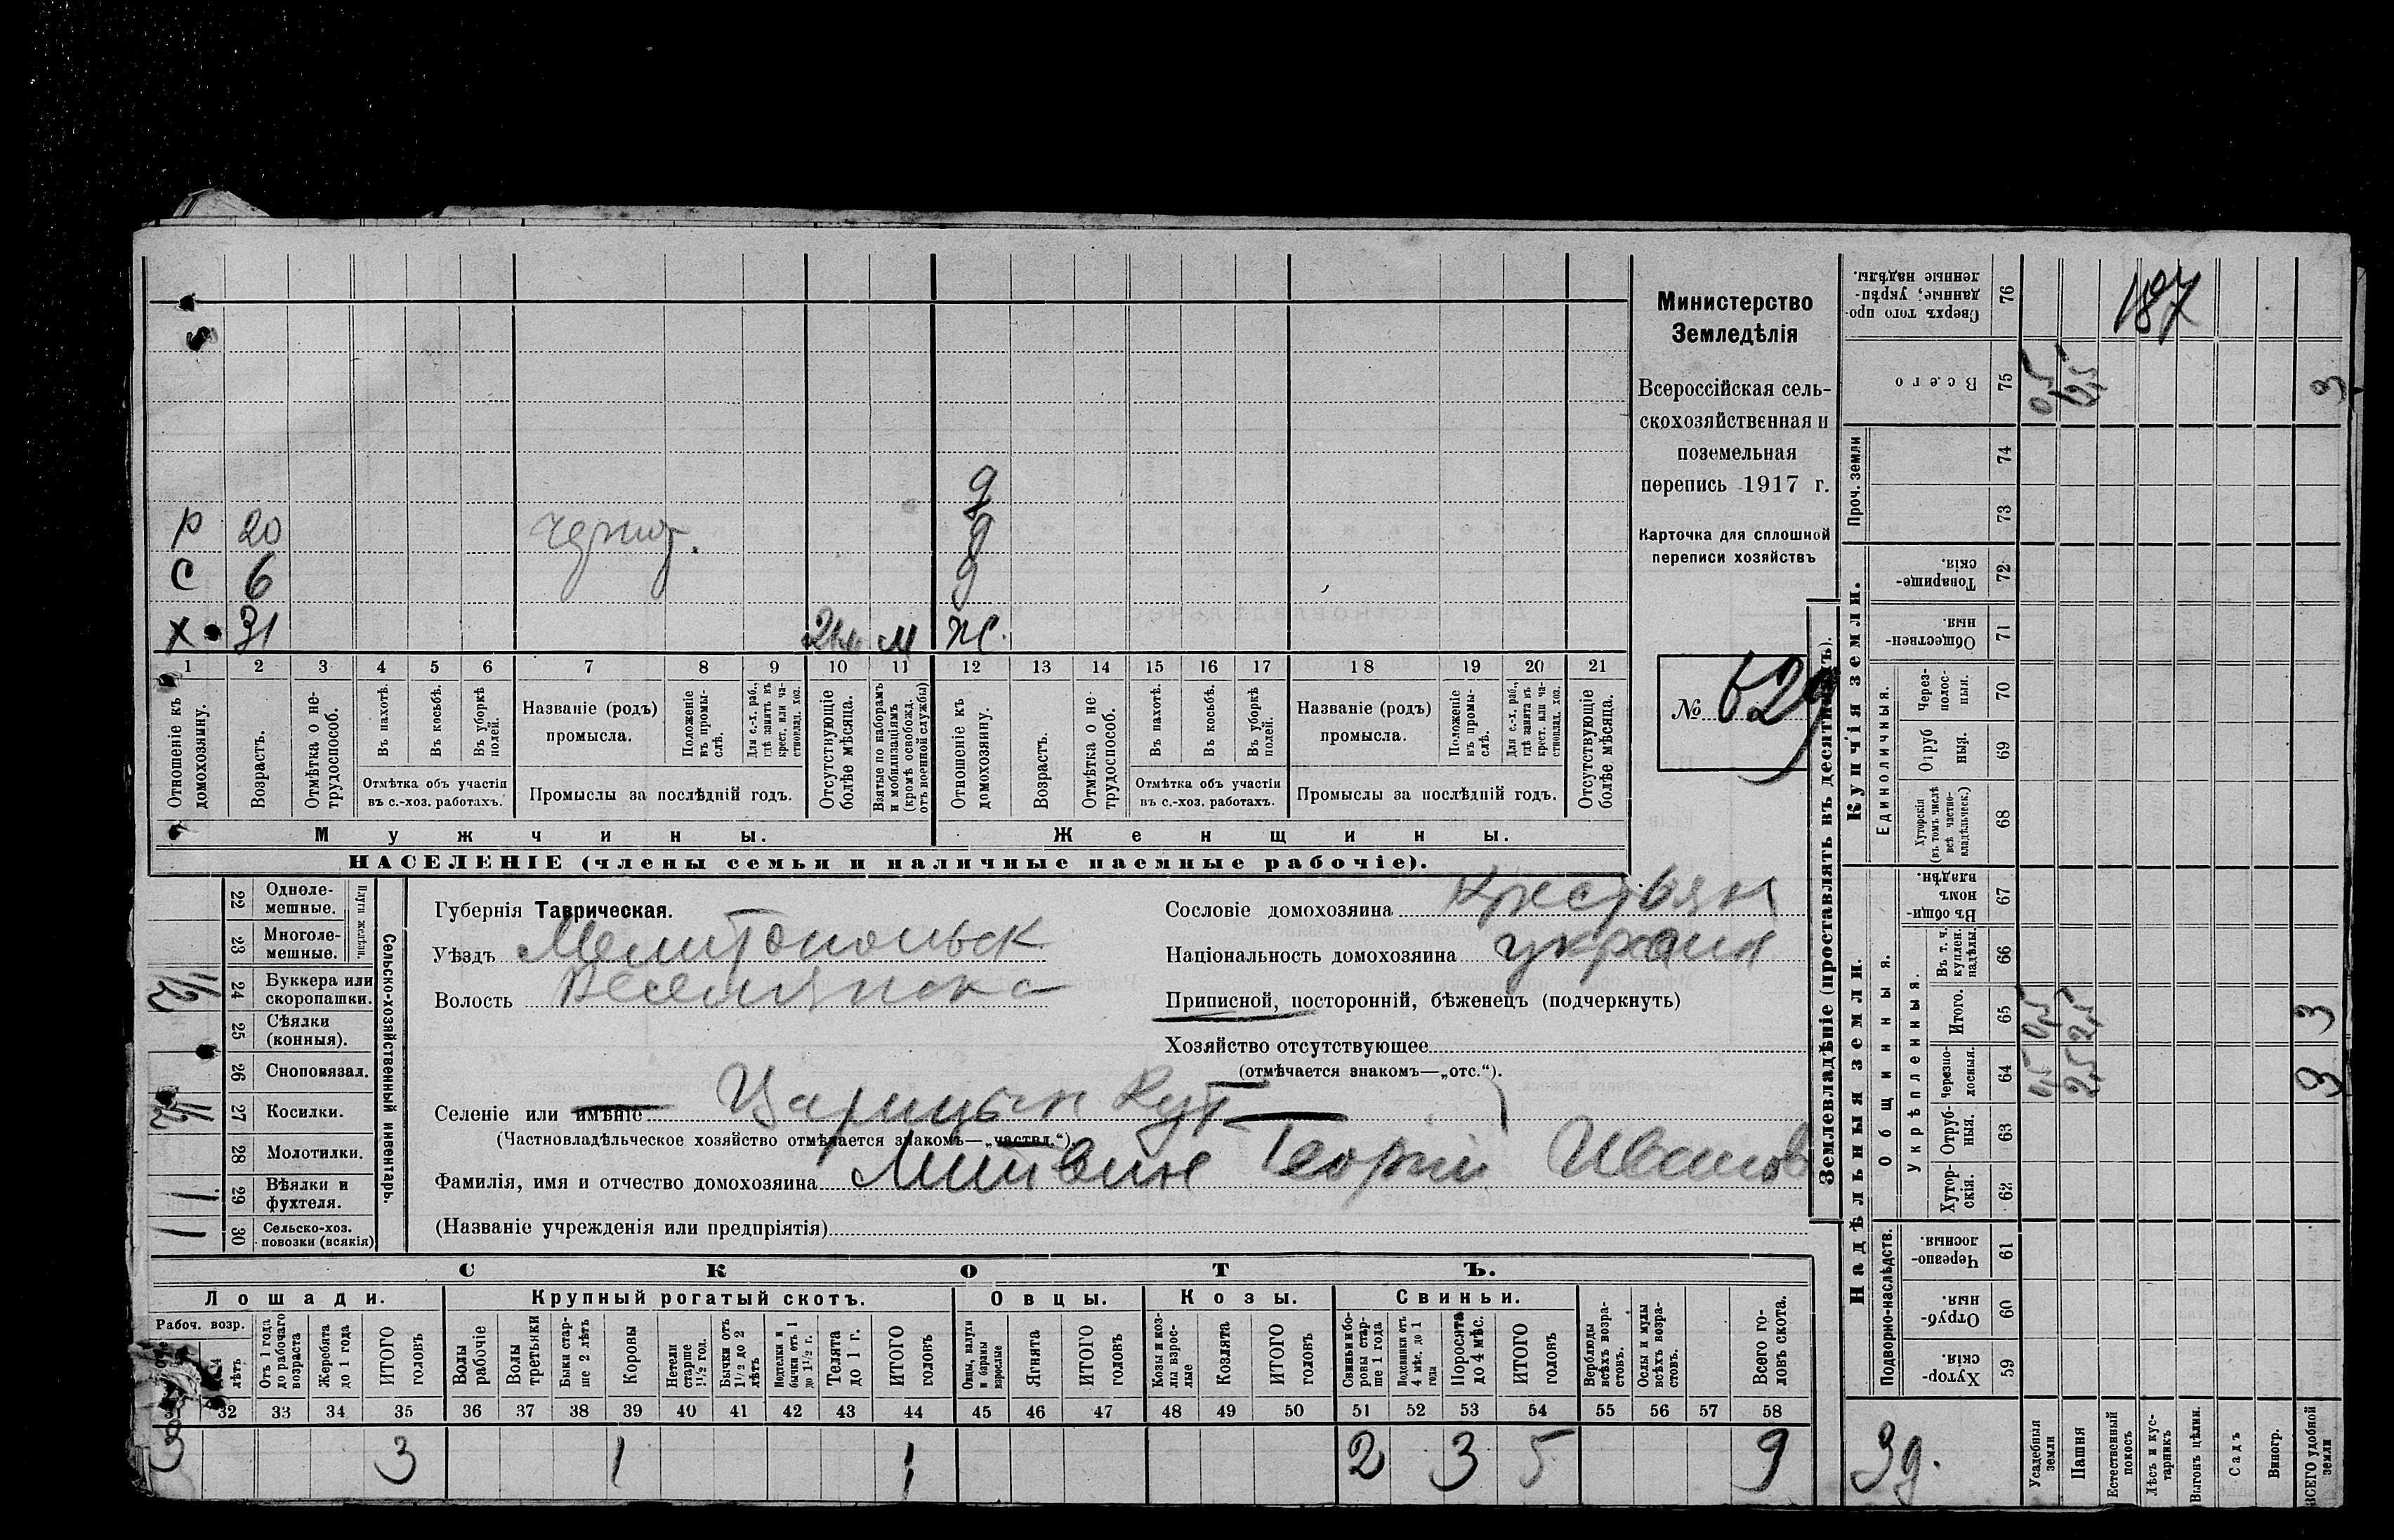 Министерство
Земледѣлія
Всероссійская сель-
скохозяйственная и
поземельная
перепись 1917 г.
Карточка для сплошной
переписи хозяйствъ
№ 629
187
д
Р 20 д
С 6 д
Х 31 м ж.
1 2 3 4 5 6 7 8 9 10 11 12 13 14 15 16 17 18 19 20 21
Отношеніе къ домохозяину.
Возрастъ.
Отмѣтка о не-трудоспособ.
Въ пахотѣ.
Въ косьбѣ.
Въ уборкѣ полей.
Отмѣтка объ участіи въ с.-хоз. работахъ.
Названіе (родъ) промысла.
Положеніе въ промы-слѣ.
Для с.-х. раб., гдѣ занятъ въ крест. или ча-стновлад. хоз.
Промыслы за послѣдній годъ.
Отсутствующіе болѣе мѣсяца.
Взятые по наборамъ и мобилизаціямъ (кромѣ освобожд. отъ военной службы)
Отношеніе къ домохозяину.
Возрастъ.
Отмѣтка о не-трудоспособ.
Въ пахотѣ.
Въ косьбѣ.
Въ уборкѣ полей.
Отмѣтка объ участіи въ с.-хоз. работахъ.
Названіе (родъ) промысла.
Положеніе въ промы-слѣ.
Для с.-х. раб., гдѣ занята въ крест. или ча-стновлад. хоз.
Промыслы за послѣдній годъ.
Отсутствующіе болѣе мѣсяца.
Мужчины. Женщины.
НАСЕЛЕНІЕ (члены семьи и наличные наемные рабочіе).
Сельско-хозяйственный инвентарь.
Плуги желѣзн.
22 Одноле-мешные.
23 Многоле-мешные.
24 Буккера или скоропашки.
25 Сѣялки (конныя).
26 Сноповязал.
27 Косилки.
28 Молотилки.
29 Вѣялки и фухтеля. 1
30 Сельско-хоз. повозки (всякія) 1
Губернія Таврическая.
Уѣздъ Мелитопольск
Волость Веселянска
Сословіе домохозяина Крестьян
Національность домохозяина украин
Приписной, посторонній, бѣженецъ (подчеркнуть)
Хозяйство отсутствующее
(отмѣчается знакомъ—„отс.“).
Селеніе или имѣніе Царицын Кут
(Частновладѣльческое хозяйство отмѣчается знакомъ—„частвл.“).
Фамилія, имя и отчество домохозяина Литвин Георгій Иванов
(Названіе учрежденія или предпріятія)
СКОТЪ.
Лошади. Крупный рогатый скотъ. Овцы. Козы. Свиньи.
Рабоч. возр.
лѣтъ
Отъ 1 года до рабочаго возраста
Жеребята до 1 года
ИТОГО головъ
Волы рабочіе
Волы третьяки
Быки стар-ше 2 лѣтъ
Коровы
Нетели старше 1½ год.
Бычки отъ 1½ до 2 лѣтъ
Нетелки и бычки отъ 1 до 1½ г.
Телята до 1 г.
ИТОГО головъ
Овцы, валухи и бараны взрослые
Ягнята
ИТОГО головъ
Козы и коз-лы взрос-лые
Козлята
ИТОГО головъ
Свиньи и бо-ровы стар-ше 1 года
Подсвинки отъ 4 мѣс. до 1 года
Поросята до 4 мѣс.
ИТОГО головъ
Верблюды всѣхъ возра-стовъ.
Ослы и мулы всѣхъ возра-стовъ.
Всего го-ловъ скота.
32 33 34 35 36 37 38 39 40 41 42 43 44 45 46 47 48 49 50 51 52 53 54 55 56 57 58
3 3 1 1 2 3 5 9
Землевладѣніе (проставлять въ десятинахъ).
Надѣльныя земли. Купчія земли.
Подворно-наслѣдств.
Общинныя.
Укрѣпленныя.
Единоличныя.
Проч. земли
59 Хутор-скія.
60 Отруб-ныя.
61 Черезпо-лосныя.
62 Хутор-скія.
63 Отруб-ныя.
64 черезпо-лосныя.
65 Итого.
66 Въ т. ч. куплен. надѣлы.
67 Въ общин-номъ владѣн.
68 Хуторскія (въ томъ числѣ всѣ частно-владѣльческ.)
69 Отруб ныя.
70 Через-полос-ныя.
71 Обществен-ныя.
72 Товарище-скія.
73
74
75 Всего
76 Сверхъ того про-данные, укрѣп-ленные надѣлы.
Усадебныя земли
Пашня
Естественный покосъ
Лѣсъ и кус-тарникъ
Выгонъ цѣлин.
Садъ
Виногр.
ВСЕГО удобной земли
0,5 2,5 3
0,5 2,5 3
0,5 2,5 3
3д.